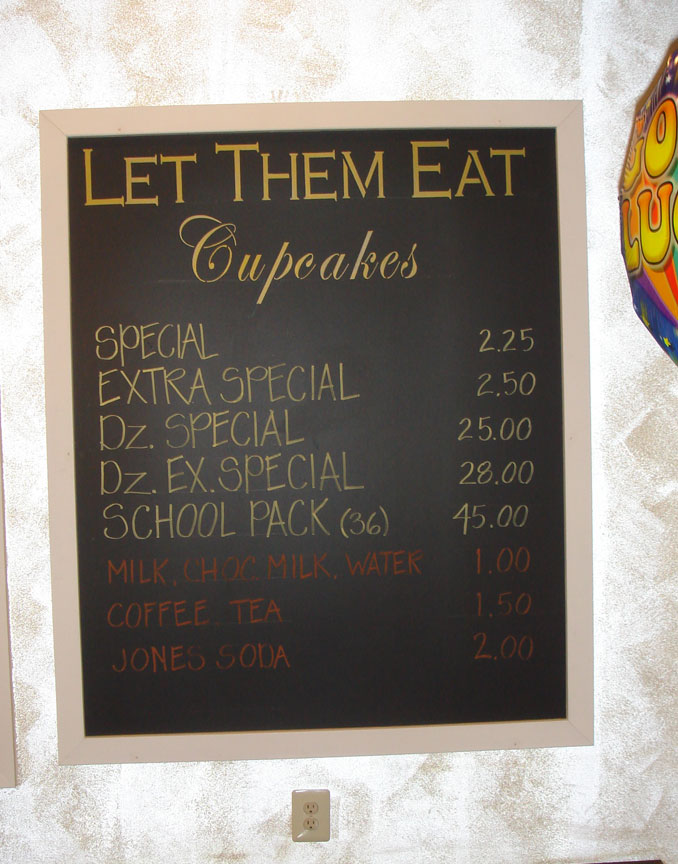 LET THEM EAT
Cupcakes
SPECIAL 2.25
EXTRA SPECIAL 2.50
Dz. SPECIAL 25.00
Dz. EX. SPECIAL 28.00
SCHOOL PACK (36) 45.00
MILK, CHOC MILK, WATER 1.00
COFFEE TEA 1.50
JONES SODA 2.00